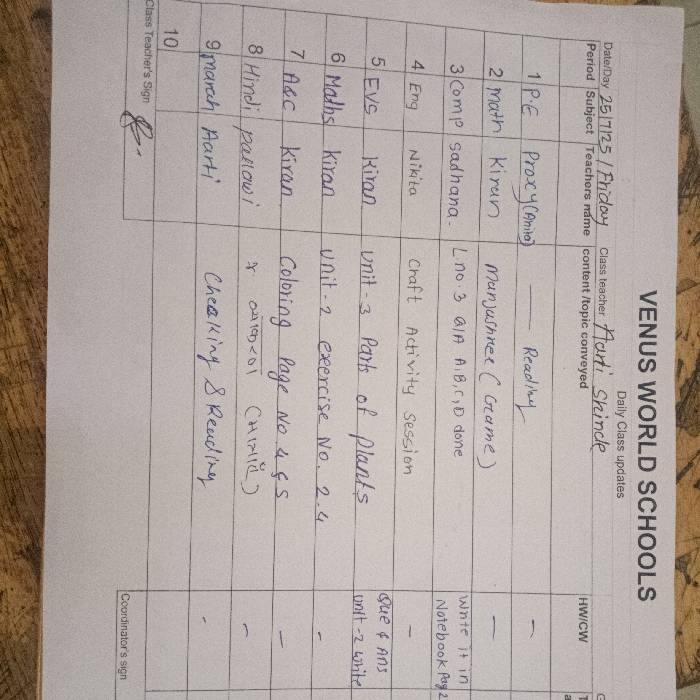 VENUS WORLD SCHOOLS
Daily Class updates
Date/Day 25/7/25 / Friday Class teacher Aarti Shinde
Period Subject Teachers name content /topic conveyed HW/CW
1 P.E Proxy (Anita) — Reading -
2 Math Kiran Manjushree (Game) —
3 Comp Sadhana. L.no.3 Q/A A,B,C,D done Write it in Notebook Pag 2
4 Eng Nikita Craft Activity Session -
5 EVS Kiran Unit-3 Parts of plants Que & Ans Unit-2 write
6 Maths Kiran Unit-2 exercise No. 2.4 -
7 A&C Kiran Coloring Page No 4 & 5 -
8 Hindi pallavi -
9 marath Aarti Checking & Reading -
10
Class Teacher's Sign Coordinator's sign